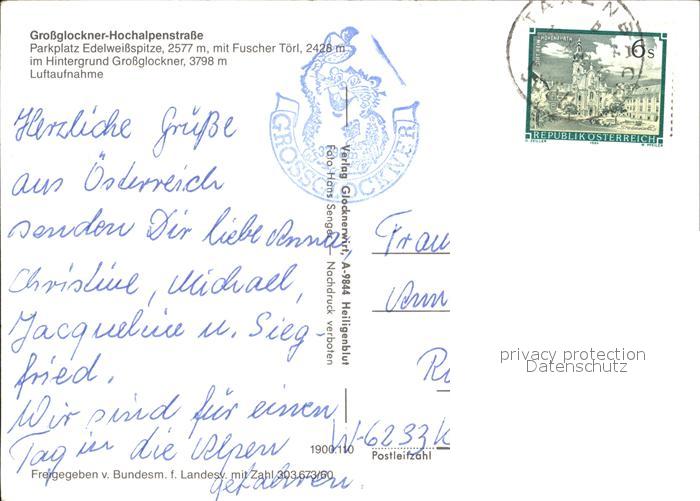 Großglockner-Hochalpenstraße
Parkplatz Edelweißspitze, 2577 m, mit Fuscher Törl, 2428 m
im Hintergrund Großglockner, 3798 m
Luftaufnahme
GROSSGLOCKNER
6s
REPUBLIK ÖSTERREICH
Herzliche Grüße
aus Österreich
senden Dir liebe Anna,
Christine, Michael,
Jacqueline u. Sieg-
fried.
Wir sind für einen
Tag in die Alpen
gefahren.
Verlag Glocknerwirt, A-9844 Heiligenblut
Foto Hans Senger – Nachdruck verboten
Frau
Ann
W-6233 K
Postleitzahl
1900/110
Freigegeben v. Bundesm. f. Landesv. mit Zahl 303.673/60
privacy protection
Datenschutz